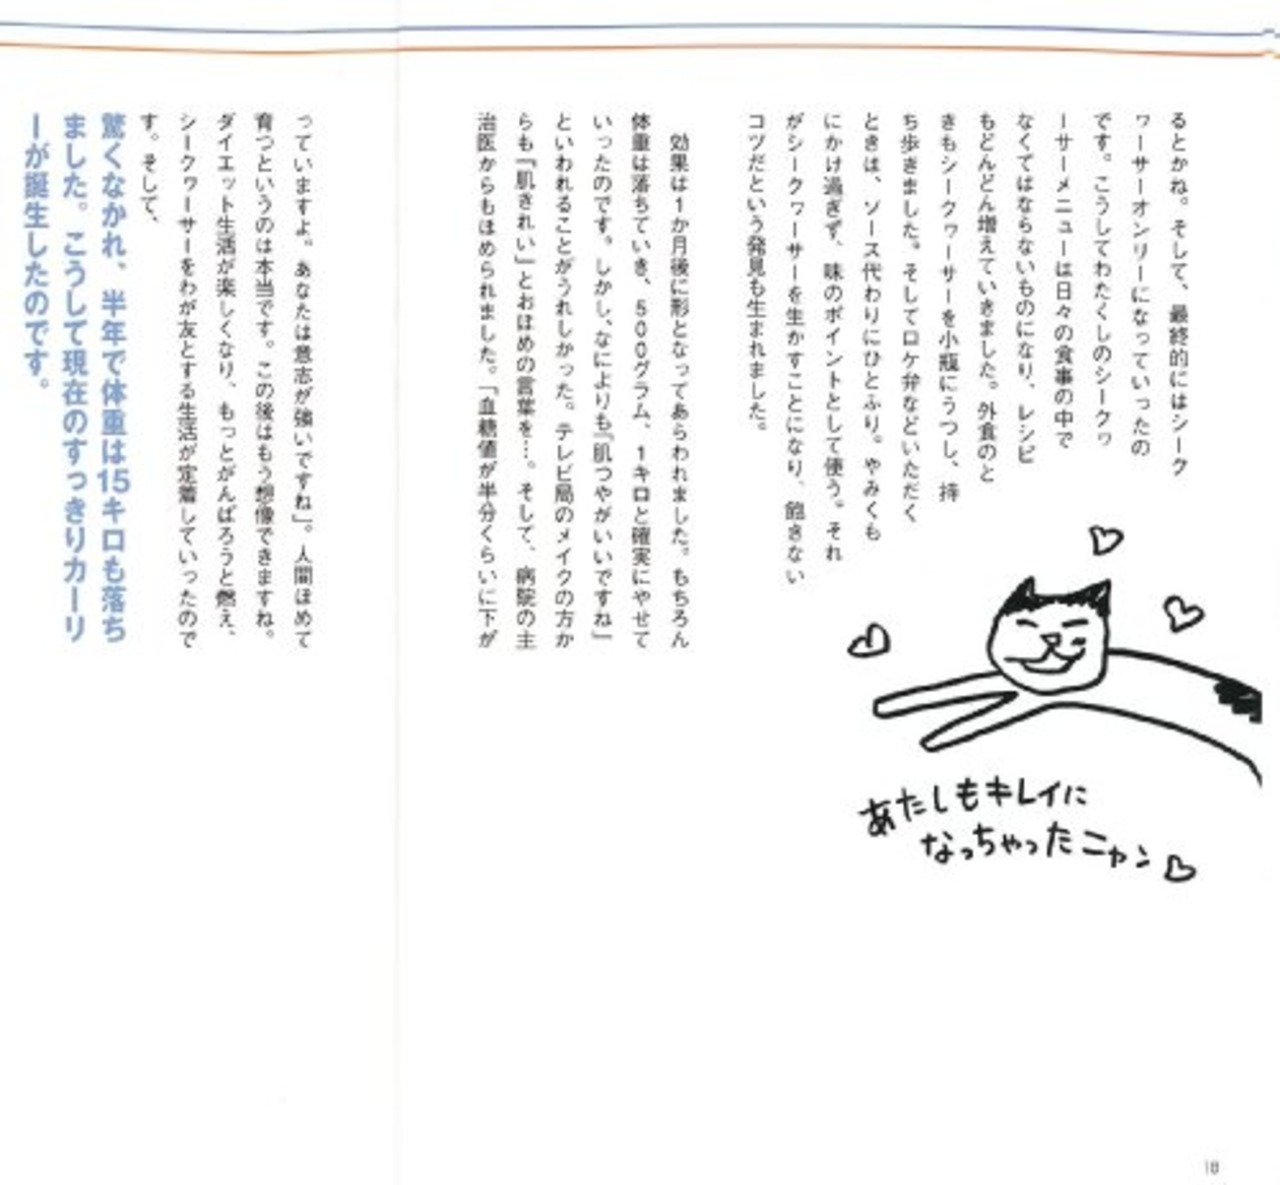 るとかね。そして、最終的にはシーク
ヮーサーオンリーになっていったの
です。こうしてわたくしのシークヮ
ーサーメニューは日々の食事の中で
なくてはならないものになり、レシピ
もどんどん増えていきました。外食のと
きもシークヮーサーを小瓶にうつし、持
ち歩きました。そしてロケ弁などいただく
ときは、ソース代わりにひとふり。やみくも
にかけ過ぎず、味のポイントとして使う。それ
がシークヮーサーを生かすことになり、飽きない
コツだという発見も生まれました。
効果は1か月後に形となってあらわれました。もちろん
体重は落ちていき、500グラム、1キロと確実にやせて
いったのです。しかし、なによりも「肌つやがいいですね」
といわれることがうれしかった。テレビ局のメイクの方か
らも「肌きれい」とおほめの言葉を…。そして、病院の主
治医からもほめられました。「血糖値が半分くらいに下が
っていますよ。あなたは意志が強いですね」。人間ほめて
育つというのは本当です。この後はもう想像できますね。
ダイエット生活が楽しくなり、もっとがんばろうと燃え、
シークヮーサーをわが友とする生活が定着していったので
す。そして、
驚くなかれ、半年で体重は15キロも落ち
ました。こうして現在のすっきりカーリ
ーが誕生したのです。
あたしもキレイに
なっちゃったニャン♡
18